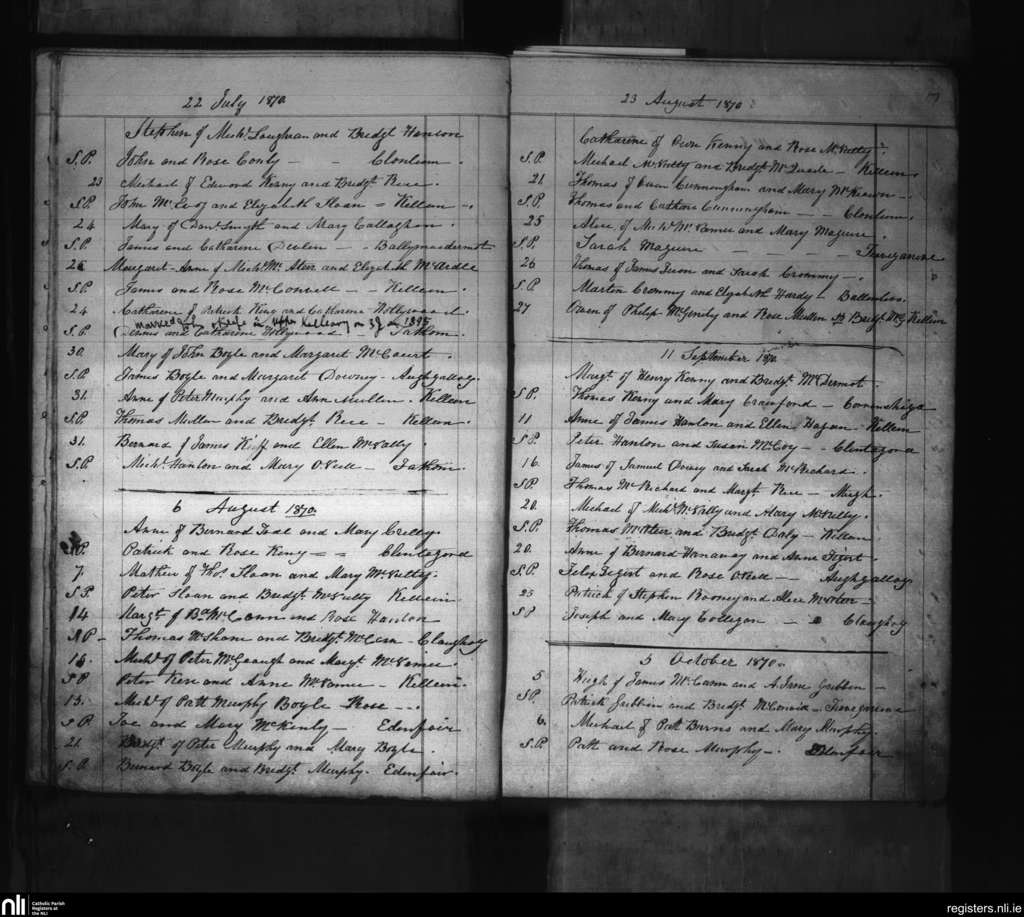 22 July 1870
Stephen of Michl. Loughran and Bridgt Hanlon
S.P. John and Rose Conly - - Clontum.
23 Michael of Edward Kerny and Bridgt. Rice.
S.P. John Mc and Elizabeth Sloane = Killean
24 Mary of Danl. Smyth and Mary Callaghan.
S.P. James and Catharine Devlin - - Ballymacdermot
Margaret-Anne of Michl. Mc Ateer and Elizabeth McArdle
S.P. James and Rose McConvell - - Killean.
24 Catharine of Patrick King and Catharine Hollywood
married John in Upper Killeavy on
S.P. and Catharine Hollywood - Jackom.
30. Mary of John Boyle and Margaret McCourt.
S.P. James Boyle and Margaret Downey - Aughgallog.
31. Anne of Peter Murphy and Anne Mullen. Killeen
S.P. Thomas Mullen and Bridgt. Rice - Killean.
31. Bernard of James and Ellen McNally.
S.P. Michl. Hanlon and Mary ONeill -
6 August 1870.
Anne of Bernard and Mary Crelly.
S.P. Patrick and Rose Keny = = Clontagora
7. Mathew of Thos. Sloan and Mary McNulty.
S.P. Peter Sloan and Bridgt. McNulty Killein
14 Margt. of McCann and Rose Hanlon
S.P - Thomas McShane and Bridgt. McCann - Claughoy
Michl. of Peter McGeough and Margt. McNamee.
S.P Peter and Anne McNamee - Killein.
Michl. of Patt Murphy Boyle Rose - . .
S.P. Joe and Mary McKenty - Edenfair
21. Bridgt. of Peter Murphy and Mary Boyle.
S.P. Bernard Boyle and Bridgt. Murphy. Edenfair.
23 August 1870
Catharine of Owen Kenny and Rose McNulty.
S.P. Michael McNulty and Bridgt. McQuade - Killeen.
21. Thomas of Owen Cunningham and Mary McKeown -
S.P. Thomas and Catharine Cunningham - - Clontum.
25 Alice of Michl. McNamee and Mary Maguire.
S.P. Sarah Maguire - - - -
26 Thomas of James and Sarah Crommy -.
S.P Martin Crommy and Elizabeth Hardy -
27 Owen of Philip McGinity and Rose Mullen SP Bridgt McG Killein
11 September 1870.
Margt. of Henry Kenny and Bridgt. McDermot.
S.P. Thomas Kerny and Mary Crawford -
11 Anne of James Hanlon and Ellen Hagan - Killeen
S.P. Peter Hanlon and Susan McCoy - - Clontagora
16. James of Samuel Downy and Sarah McRichard.
S.P. Thomas McRichard and Margt. Rice - Meigh.
20. Michael of Michl. McNally and Mary McNulty.
S.P. Thomas McAteer and Bridgt. Daly - Killean
20. Anne of Bernard Hanaway and Anne Tegirt.
S.P. Felix Tegirt and Rose ONeill - Aughgallog
25 Patrick of Stephen Rooney and Alice McAteer -
S.P Joseph and Mary Colligan - Claughoy
5 October 1870.
5 Hugh of James McCann and Gribbin -
S.P. Patrick Gribbin and Bridgt McConvill -
6. Michael of Patt Burns and Mary Murphy.
S.P. Patt and Rose Murphy -. Edenfair
nli
Catholic Parish
Registers at
the NLI
registers.nli.ie